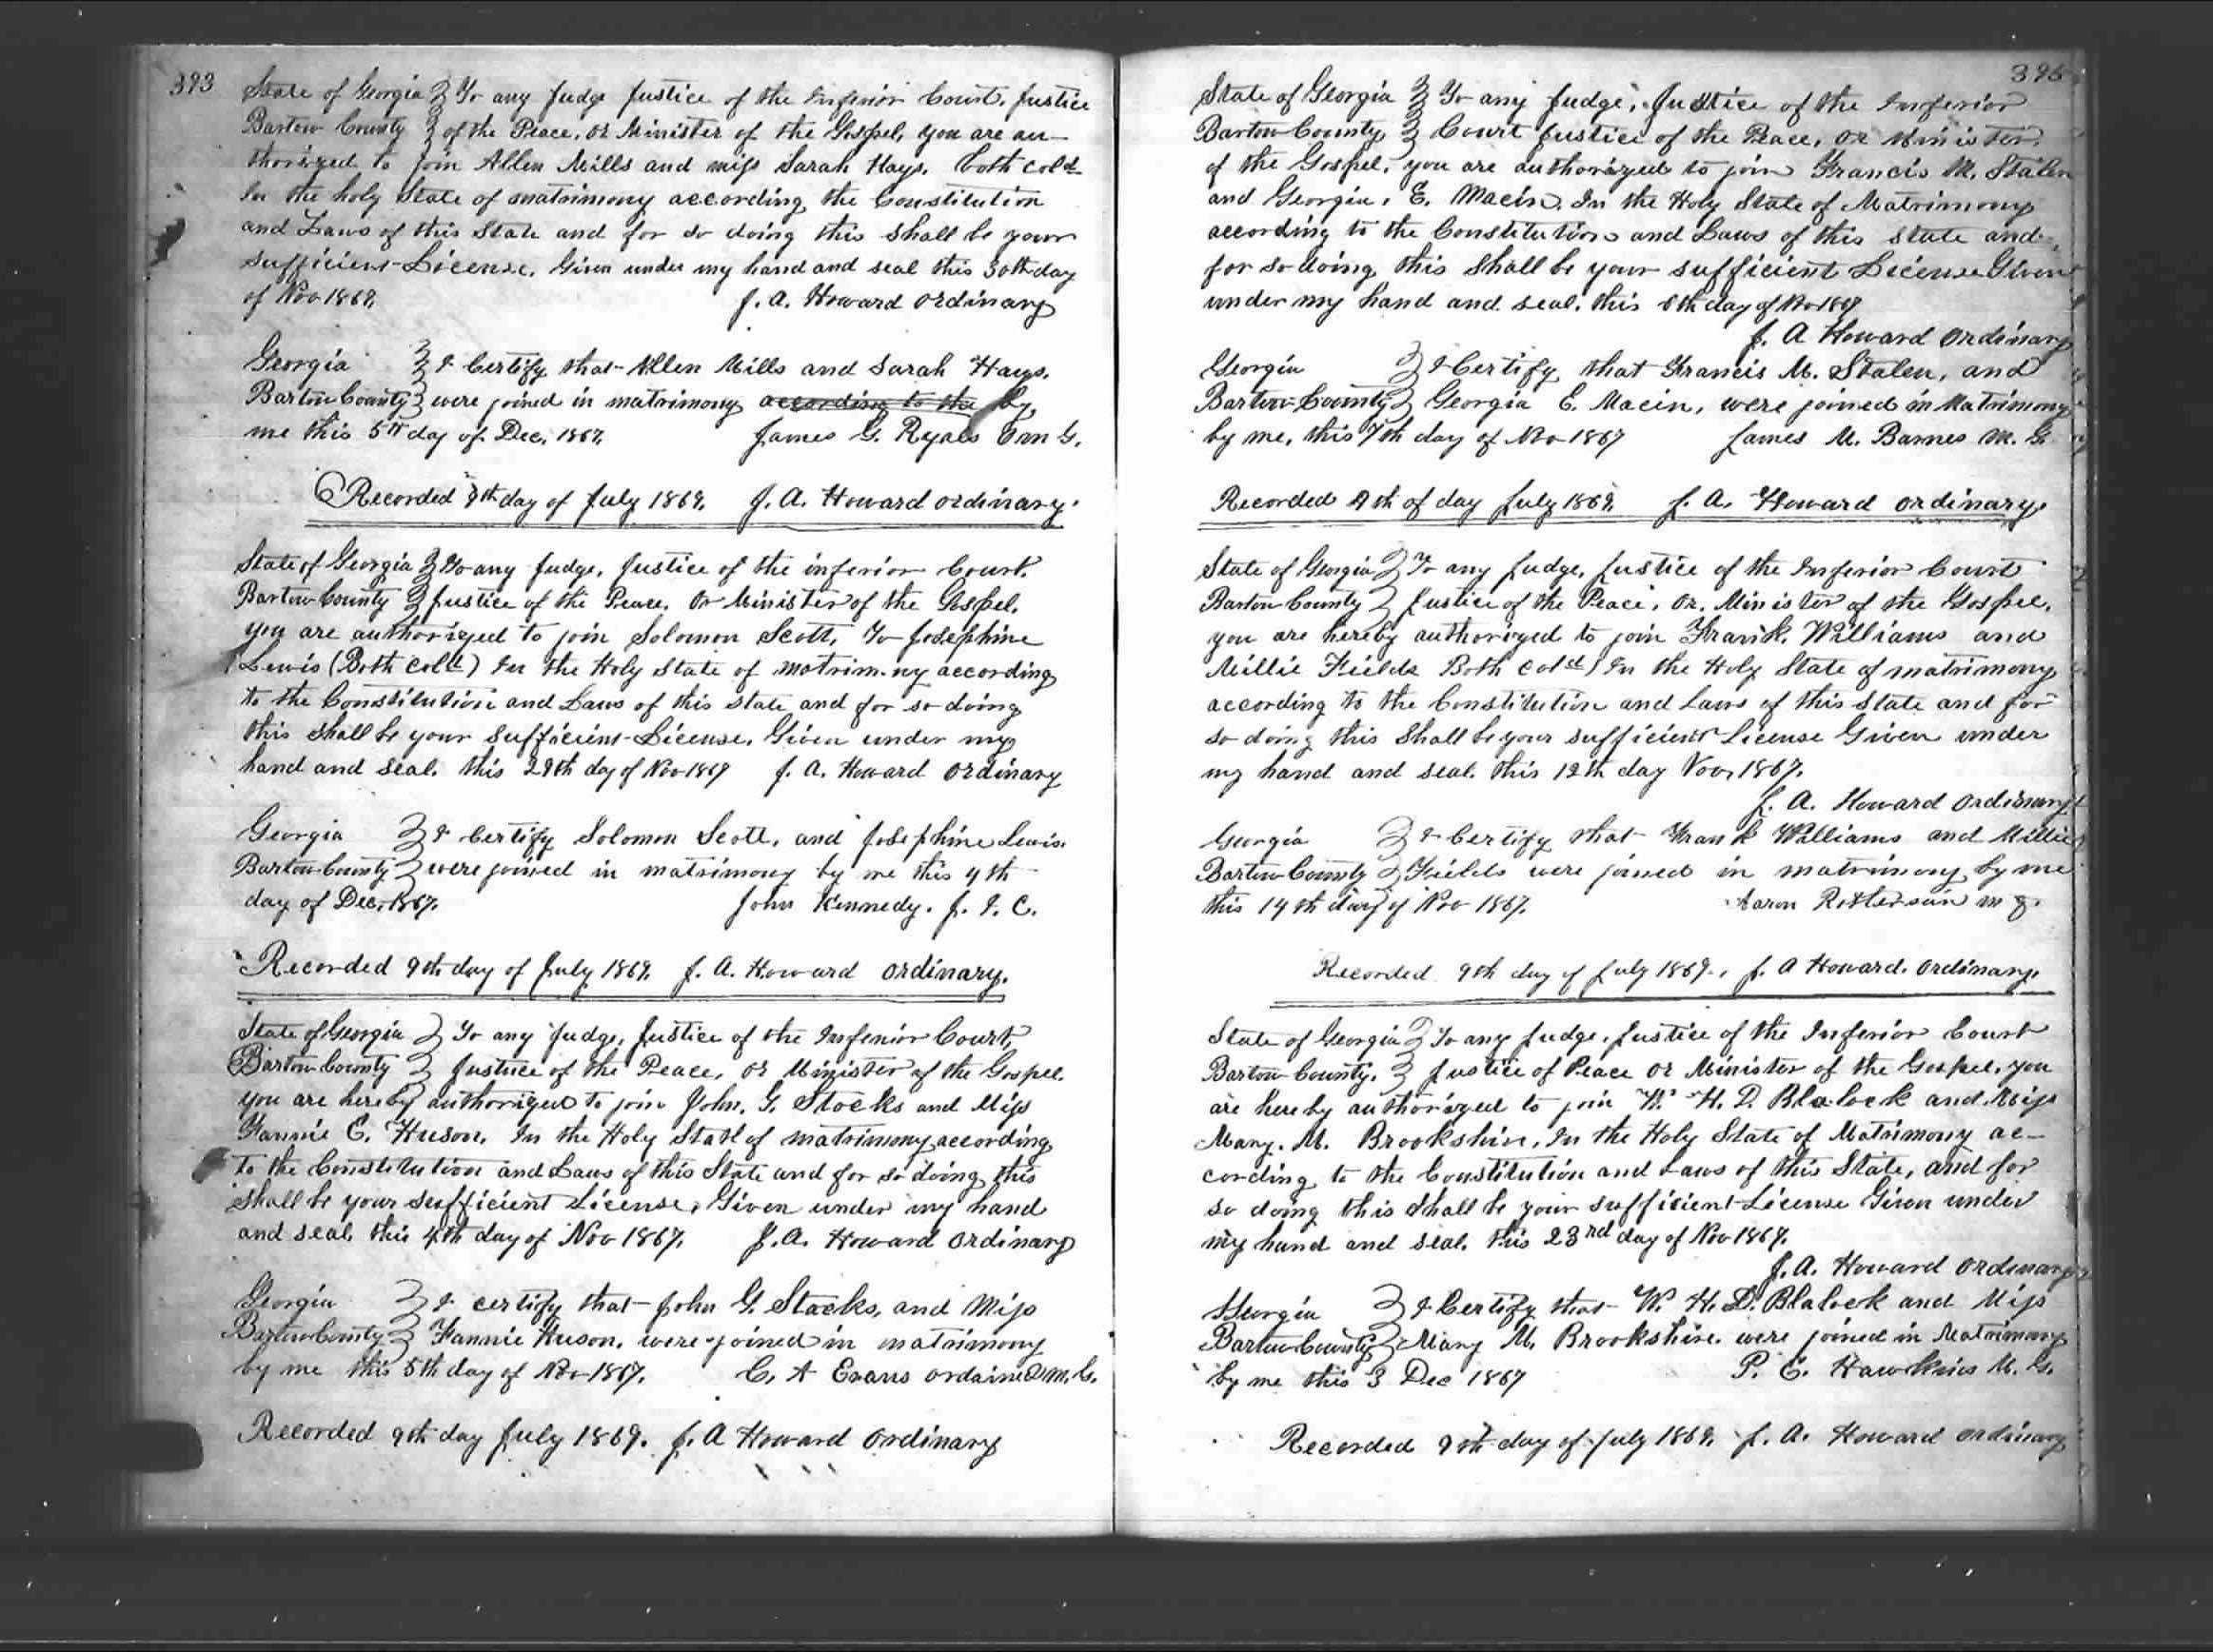 393
State of Georgia } To any Judge Justice of the Inferior Court, Justice
Bartow County } of the Peace, or Minister of the Gospel, you are au-
thorized to join Allen Mills and miss Sarah Hays. both cold
In the holy State of matrimony according the Constitution
and Laws of this State and for so doing this shall be your
sufficient License. Given under my hand and seal this 30th day
of Nov 1867. J. A. Howard Ordinary
Georgia } I Certify that Allen Mills and Sarah Hays.
Bartow County } were joined in matrimony according to the by
me this 5th day of Dec, 1867. James G. Ryals O M G.
Recorded 9th day of July 1869. J. A. Howard ordinary.
State of Georgia } To any Judge, Justice of the inferior Court.
Bartow County } Justice of the Peace, Or Minister of the Gospel.
you are authorized to join Solomon Scott, To Josephine
Lewis (Both cold) In the Holy State of matrimony according
to the Constitution and Laws of this state and for so doing
this shall be your sufficient License. Given under my
hand and seal. this 29th day of Nov 1867 J. A. Howard Ordinary
Georgia } I Certify Solomon Scott, and Josephine Lewis.
Bartow County } were joined in matrimony by me this 4th
day of Dec. 1867. John Kennedy. J. I. C.
Recorded 9th day of July 1869. J. A. Howard Ordinary.
State of Georgia } To any Judge, Justice of the Inferior Court,
Bartow County } Justice of the Peace, or Minister of the Gospel.
you are hereby authorized to join John. G. Stocks and Miss
Fannie E. Huson. In the Holy State of matrimony according
to the Constitution and Laws of this State and for so doing this
shall be your sufficient License, Given under my hand
and seal. this 4th day of Nov 1867. J. A. Howard Ordinary
Georgia } I certify that John G. Stocks, and Miss
Bartow County } Fannie Huson. were joined in matrimony
by me this 5th day of Nov 1867. C. A Evans ordained M. G.
Recorded 9th day July 1869. J. A Howard Ordinary
395
State of Georgia } To any Judge, Justice of the Inferior
Bartow County } Court Justice of the Peace, or Minister.
of the Gospel, you are authorized to join Francis M. Stalen
and Georgia, E. Macin. In the Holy State of Matrimony
according to the Constitution and Laws of this state and
for so doing this shall be your sufficient License Given
under my hand and seal. this 6th day of Nov 1867
J. A Howard Ordinary
Georgia } I Certify that Francis M. Stalen, and
Bartow County } Georgia E. Macin, were joined in Matrimony
by me, this 7th day of Nov 1867 James M. Barnes M. G.
Recorded 9th of day July 1869. J. A. Howard Ordinary.
State of Georgia } To any Judge, Justice of the Inferior Court
Bartow County } Justice of the Peace, Or. Minister of the Gospel.
you are hereby authorized to join Frank. Williams and
Millie Fields Both cold) In the Holy State of matrimony
according to the Constitution and Laws of this State and for
so doing this shall be your sufficient License Given under
my hand and seal. this 12th day Nov, 1867.
J. A. Howard Ordinary
Georgia } I Certify that Frank Williams and Millie
Bartow County } Fields were joined in matrimony by me
this 14th day of Nov 1867. Aaron M G.
Recorded 9th day of July 1869., J. A Howard. Ordinary.
State of Georgia } To any Judge, Justice of the Inferior Court
Bartow County. } Justice of Peace or Minister of the Gospel, you
are hereby authorized to join W. H. D. Blalock and Miss
Mary. M. Brookshire, In the Holy State of Matrimony ac-
cording to the Constitution and Laws of this State, and for
so doing this shall be your sufficient License Given under
my hand and seal. this 23rd day of Nov 1867.
J. A. Howard Ordinary
Georgia } I Certify that W. H. D. Blalock and Miss
Bartow County } Mary M. Brookshire. were joined in Matrimony
by me this 3 Dec 1867 P. C. Hawkins M. G.
Recorded 9th day of July 1869. J. A. Howard Ordinary